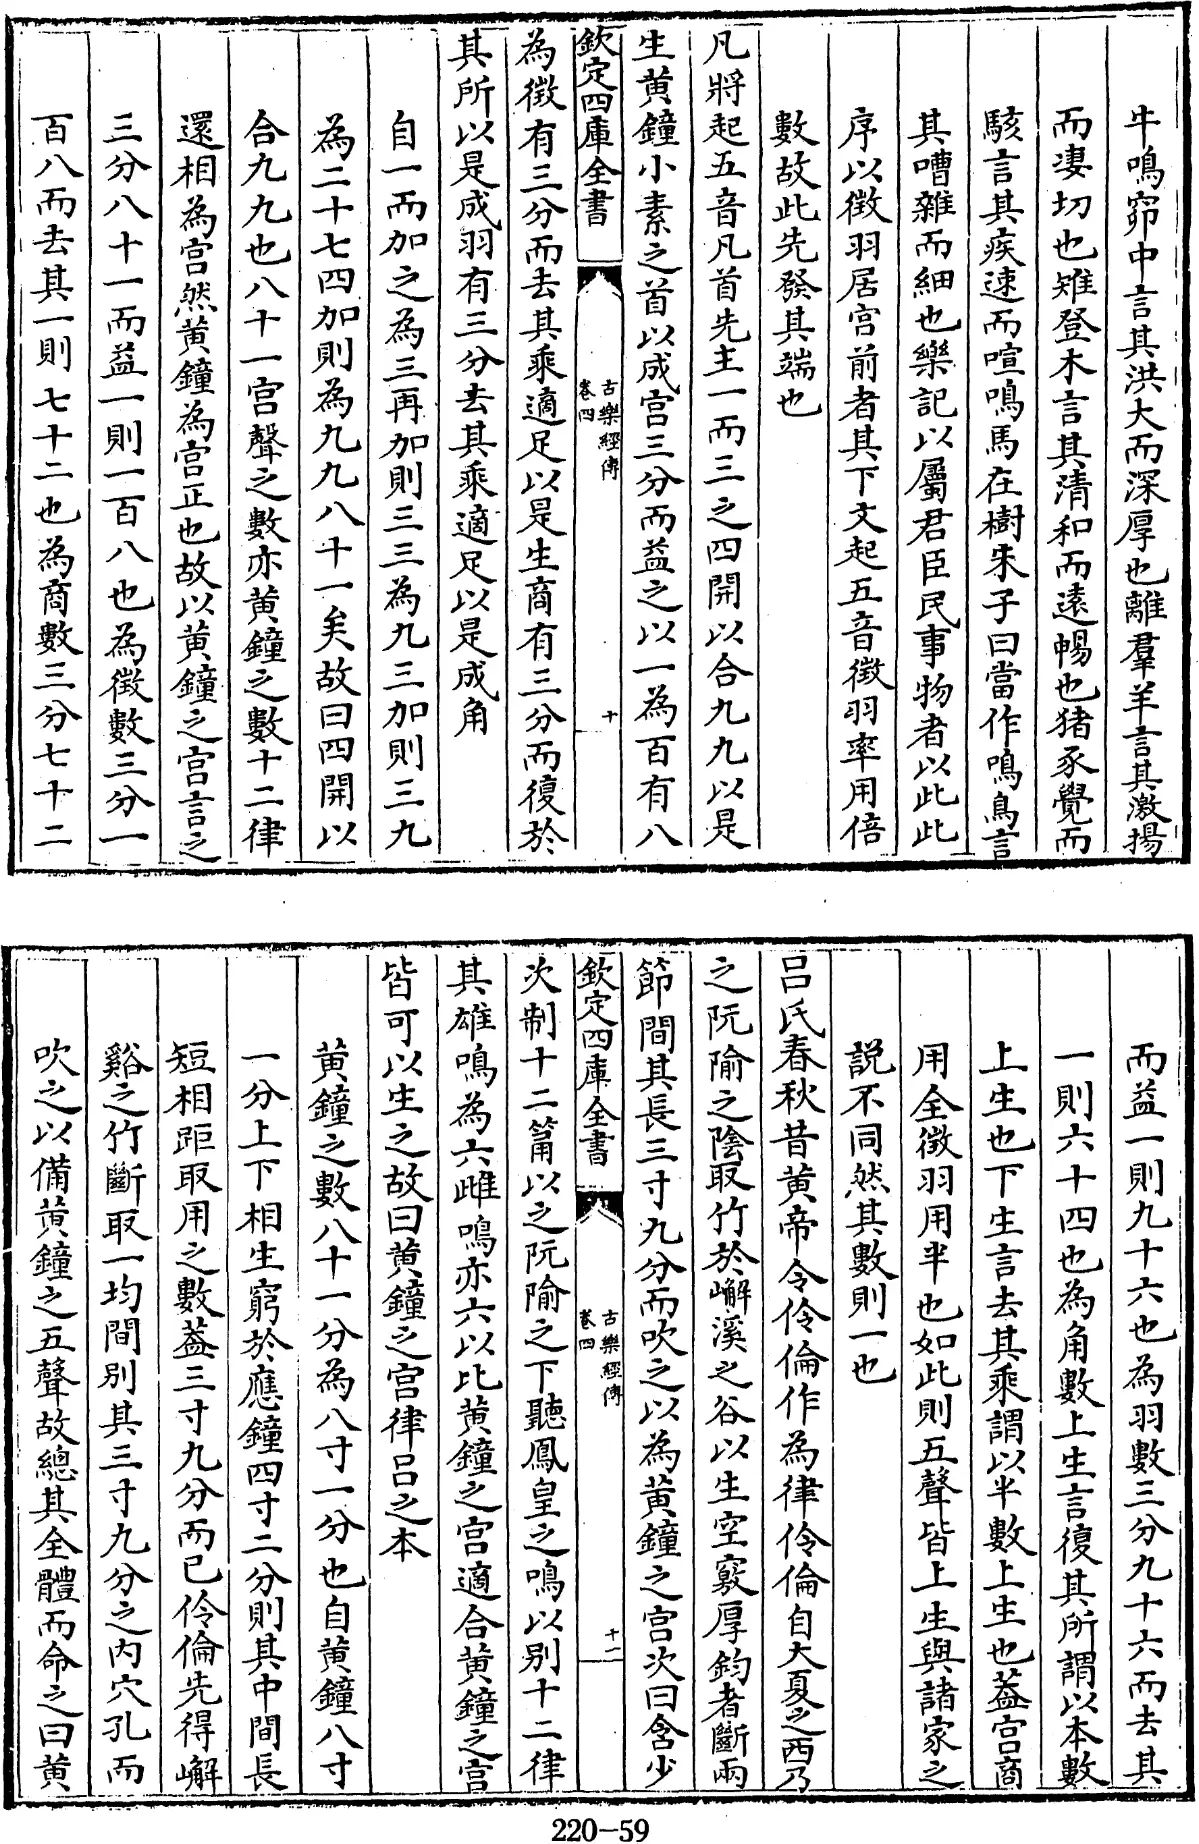 牛鳴窌中言其洪大而深厚也離羣羊言其激揚
而凄切也雉登木言其清和而遠暢也猪豕覺而
駭言其疾速而喧鳴馬在樹朱子曰當作鳴鳥言
其嘈雜而細也樂記以屬君臣民事物者以此此
序以徵羽居宫前者其下文起五音徵羽率用倍
數故此先發其端也
凡將起五音凡首先主一而三之四開以合九九以是
生黄鐘小素之首以成宫三分而益之以一為百有八
欽定四庫全書
古樂經傳
卷四
十
為徵有三分而去其乘適足以是生商有三分而復於
其所以是成羽有三分去其乘適足以是成角
自一而加之為三再加則三三為九三加則三九
為二十七四加則為九九八十一矣故曰四開以
合九九也八十一宫聲之數亦黄鐘之數十二律
還相為宫然黄鐘為宫正也故以黄鐘之宫言之
三分八十一而益一則一百八也為徵數三分一
百八而去其一則七十二也為商數三分七十二
而益一則九十六也為羽數三分九十六而去其
一則六十四也為角數上生言復其所謂以本數
上生也下生言去其乘謂以半數上生也蓋宫商
用全徵羽用半也如此則五聲皆上生與諸家之
説不同然其數則一也
吕氏春秋昔黄帝令伶倫作為律伶倫自大夏之西乃
之阮隃之陰取竹於嶰溪之谷以生空竅厚鈞者斷兩
節間其長三寸九分而吹之以為黄鐘之宫次曰含少
欽定四庫全書
古樂經傳
卷四
十一
次制十二筩以之阮隃之下聽鳳皇之鳴以别十二律
其雄鳴為六雌鳴亦六以比黄鐘之宫適合黄鐘之宫
皆可以生之故曰黄鐘之宫律吕之本
黄鐘之數八十一分為八寸一分也自黄鐘八寸
一分上下相生窮於應鐘四寸二分則其中間長
短相距取用之數蓋三寸九分而已伶倫先得嶰
谿之竹斷取一均間别其三寸九分之内穴孔而
吹之以備黄鐘之五聲故總其全體而命之曰黄
220-59